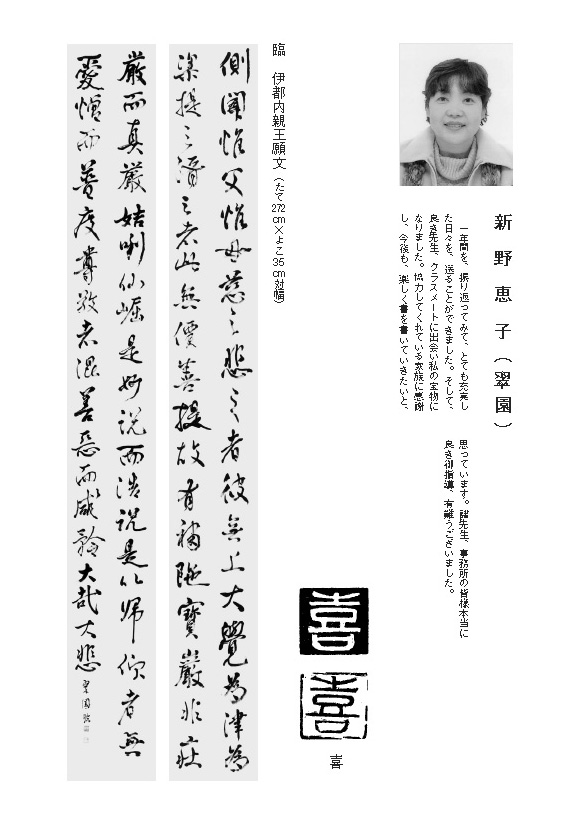 新野恵子（翠園）
一年間を、振り返ってみて、とても充実し
た日々を、送ることができました。そして、
良き先生、クラスメートに出会い私の宝物に
なりました。協力してくれている家族に感謝
し、今後も、楽しく書を書いていきたいと、
思っています。諸先生、事務所の皆様本当に
良き御指導、有難うございました。
喜
喜
喜
臨　伊都内親王願文（たて272cm×よこ35cm対幅）
側聞惟父惟母慈之悲之者彼無上大覺為津為
梁提之濟之者此無價菩提故有補陁寶嚴非莊
嚴而真嚴姞唎仙崛是妙説而浩説是以歸依者無
愛憎而普度尊敬者混善惡而咸矜大哉大悲
翠園臨